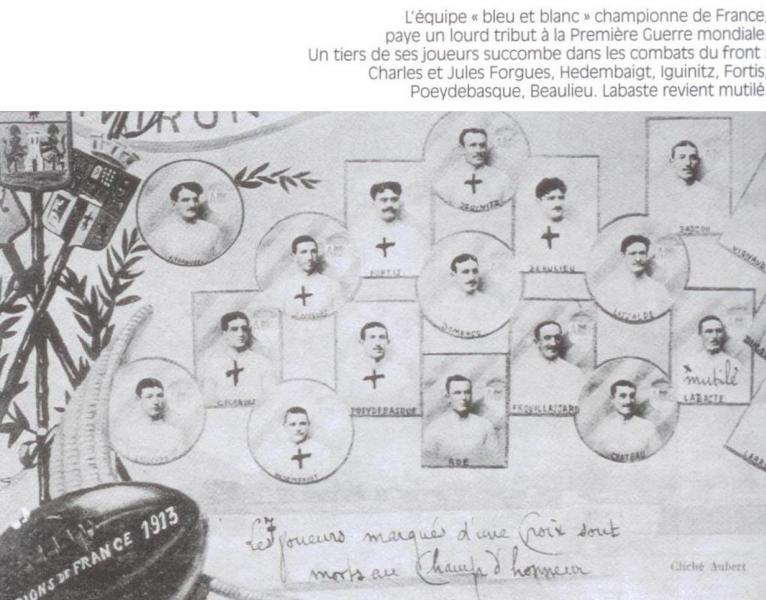 L'équipe « bleu et blanc » championne de France,
paye un lourd tribut à la Première Guerre mondiale.
Un tiers de ses joueurs succombe dans les combats du front :
Charles et Jules Forgues, Hedembaigt, Iguinitz, Fortis,
Poeydebasque, Beaulieu. Labaste revient mutilé.
IGUINITZ
BASCOU
FORTIS
BEAULIEU
DOMERCQ
LACAZALDE
POEYDEBASQUE
ROE
mutilé
LABASTE
CHATEAU
IONS DE FRANCE 1913
Les 7 joueurs marqués d'une Croix sont
morts au Champ d'honneur
Cliché Aubert